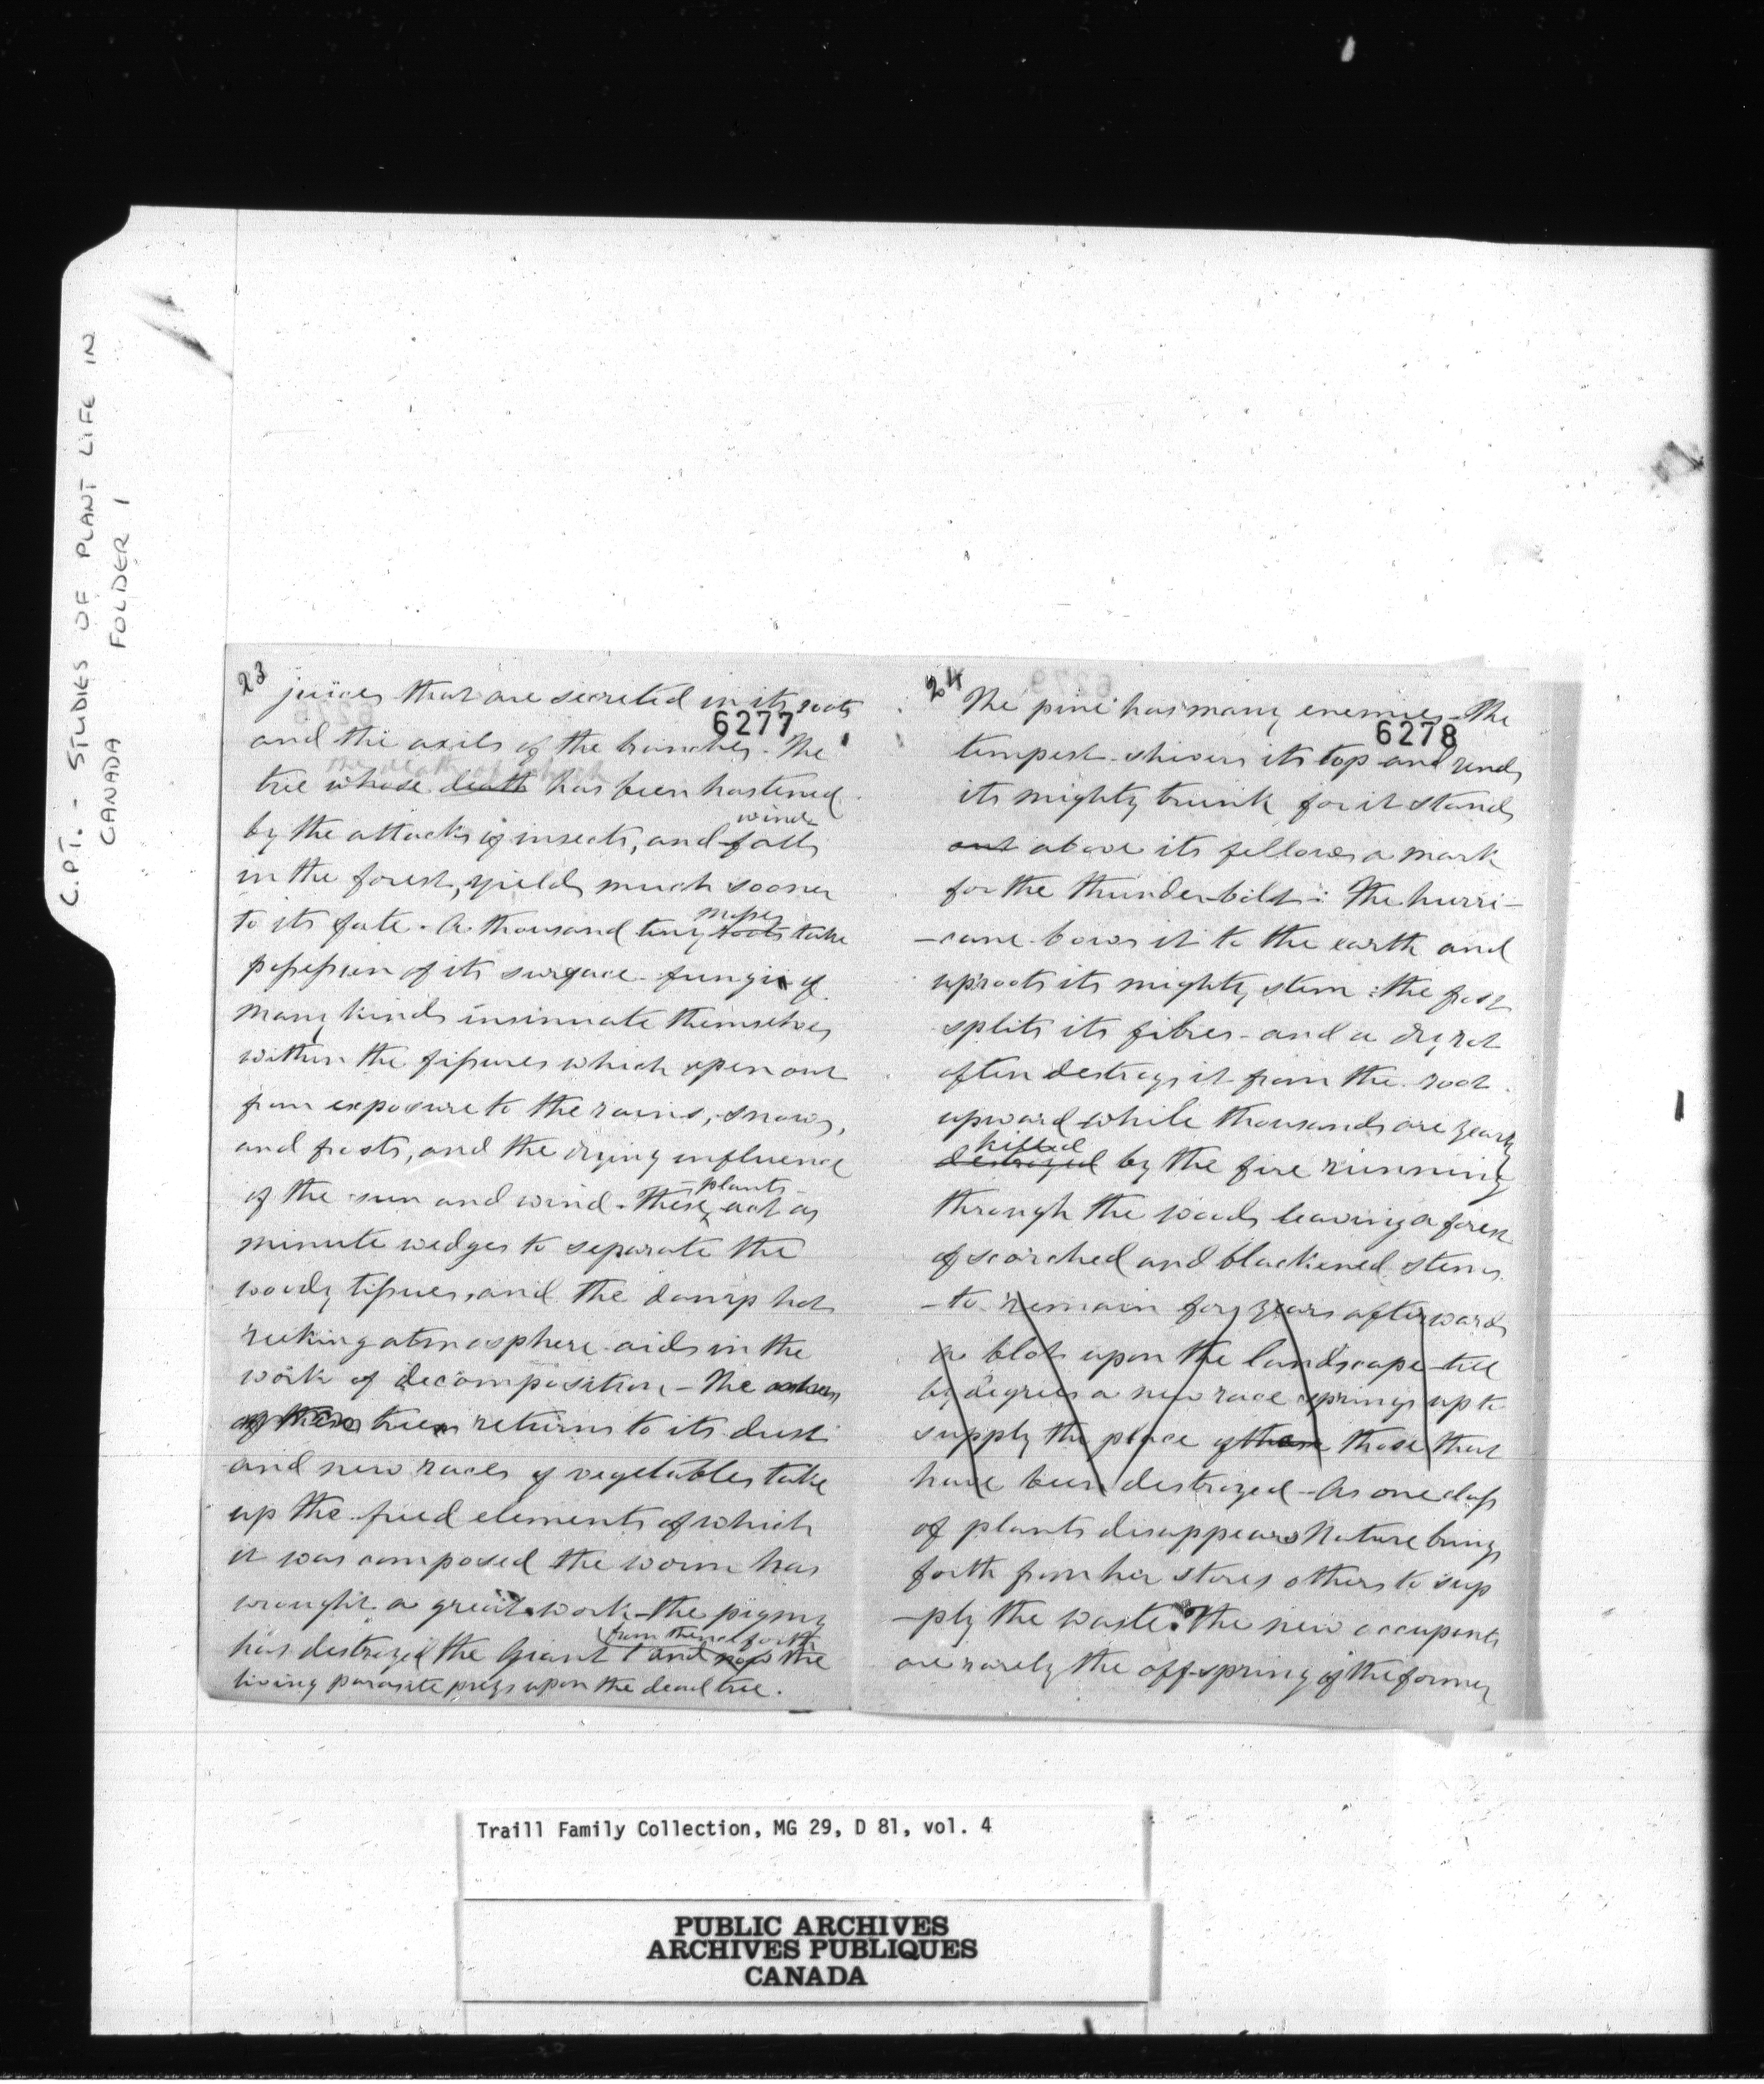 C.P.T. - STUDIES OF PLANT LIFE IN
CANADA FOLDER 1
23
juices that are secreted in its roots
6277
and the axils of the branches. The
the death of which
tree whose death has been hastened
wind
by the attacks of insects, and falls
in the forest, yields much sooner
mosses
to its fate. A thousand tiny roots take
possession of its surface. fungi of
many kinds insinuate themselves
within the fissures which open out
from exposure to the rains, snows,
and frosts, and the drying influence
plants
of the sun and wind. These act as
minute wedges to separate the
woody tissues, and the damp hot
reeking atmosphere aids in the
work of decomposition - The
of these trees returns to its dust
and new races of vegetables take
up the freed elements of which
it was composed the worm has
wrought a great work - the pigmy
from thence forth
has destroyed the Giant and now the
living parasite preys upon the dead tree.
24
The pine has many enemies - The
6278
tempest shivers its top and rends
its mighty trunk for it stands
out above its fellows a mark
for the thunder-bolt: The hurri-
-cane bows it to the earth and
uproots its mighty stem: the frost
splits its fibres - and a dry rot
often destroys it from the root
upward while thousands are yearly
killed
destroyed by the fire running
through the woods leaving a forest
of scorched and blackened stems
-to remain for years afterwards
a blot upon the landscape till
by degrees a new race springs up to
supply the place of those that
have been destroyed - As one class
of plants disappears Nature brings
forth from her stores others to sup
-ply the waste. The new occupants
are rarely the off-spring of the former
Traill Family Collection, MG 29, D 81, vol. 4
PUBLIC ARCHIVES
ARCHIVES PUBLIQUES
CANADA